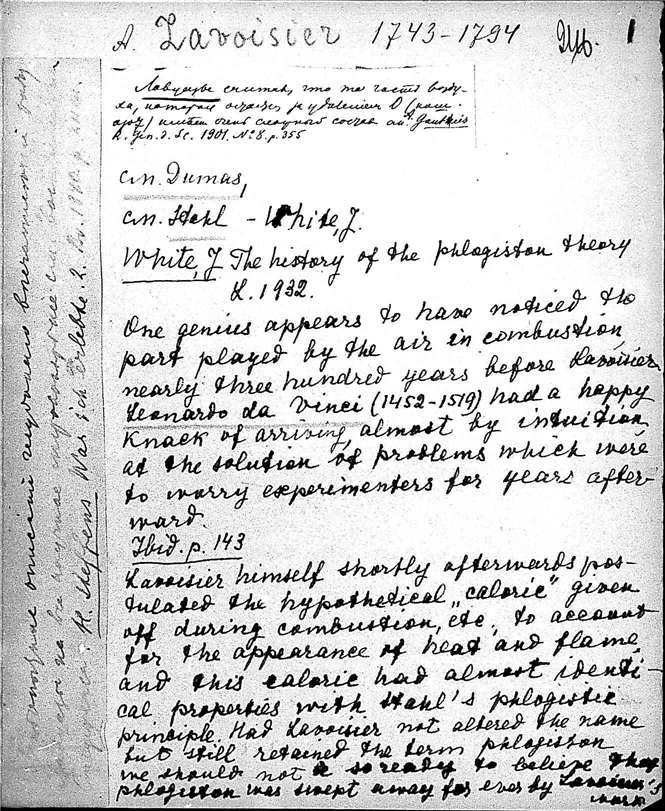 A. Lavoisier 1743-1794
1
Лавуазье считал, что та часть возду-
ха, которая
имеет очень сложный состав A. Gautier
R. gén. d. Sc. 1901. №8. p. 355
см. Dumas,
см. Stahl - White, J.
White, J The history of the phlogiston theory
L. 1932.
One genius appears to have noticed the
part played by the air in combustion
nearly three hundred years before Lavoisier
Leonardo da Vinci (1452-1519) had a happy
knack of arriving, almost by intuition
at the solution of problems which were
to worry experimenters for years after-
ward.
Ibid. p. 143
Lavoisier himself shortly afterwards pos-
tulated the hypothetical „caloric" given
off during combustion, etc, to account
for the appearance of heat and flame
and this caloric had almost identi-
cal properties with Stahl's phlogistic
principle. Had Lavoisier not altered the name
but still retained the term phlogiston
we should not so ready to believe that
phlogiston was swept away for ever by Lavoisier's
work
описание
H. Steffens Was ich Erlebte. 2. Br. 1840. p.